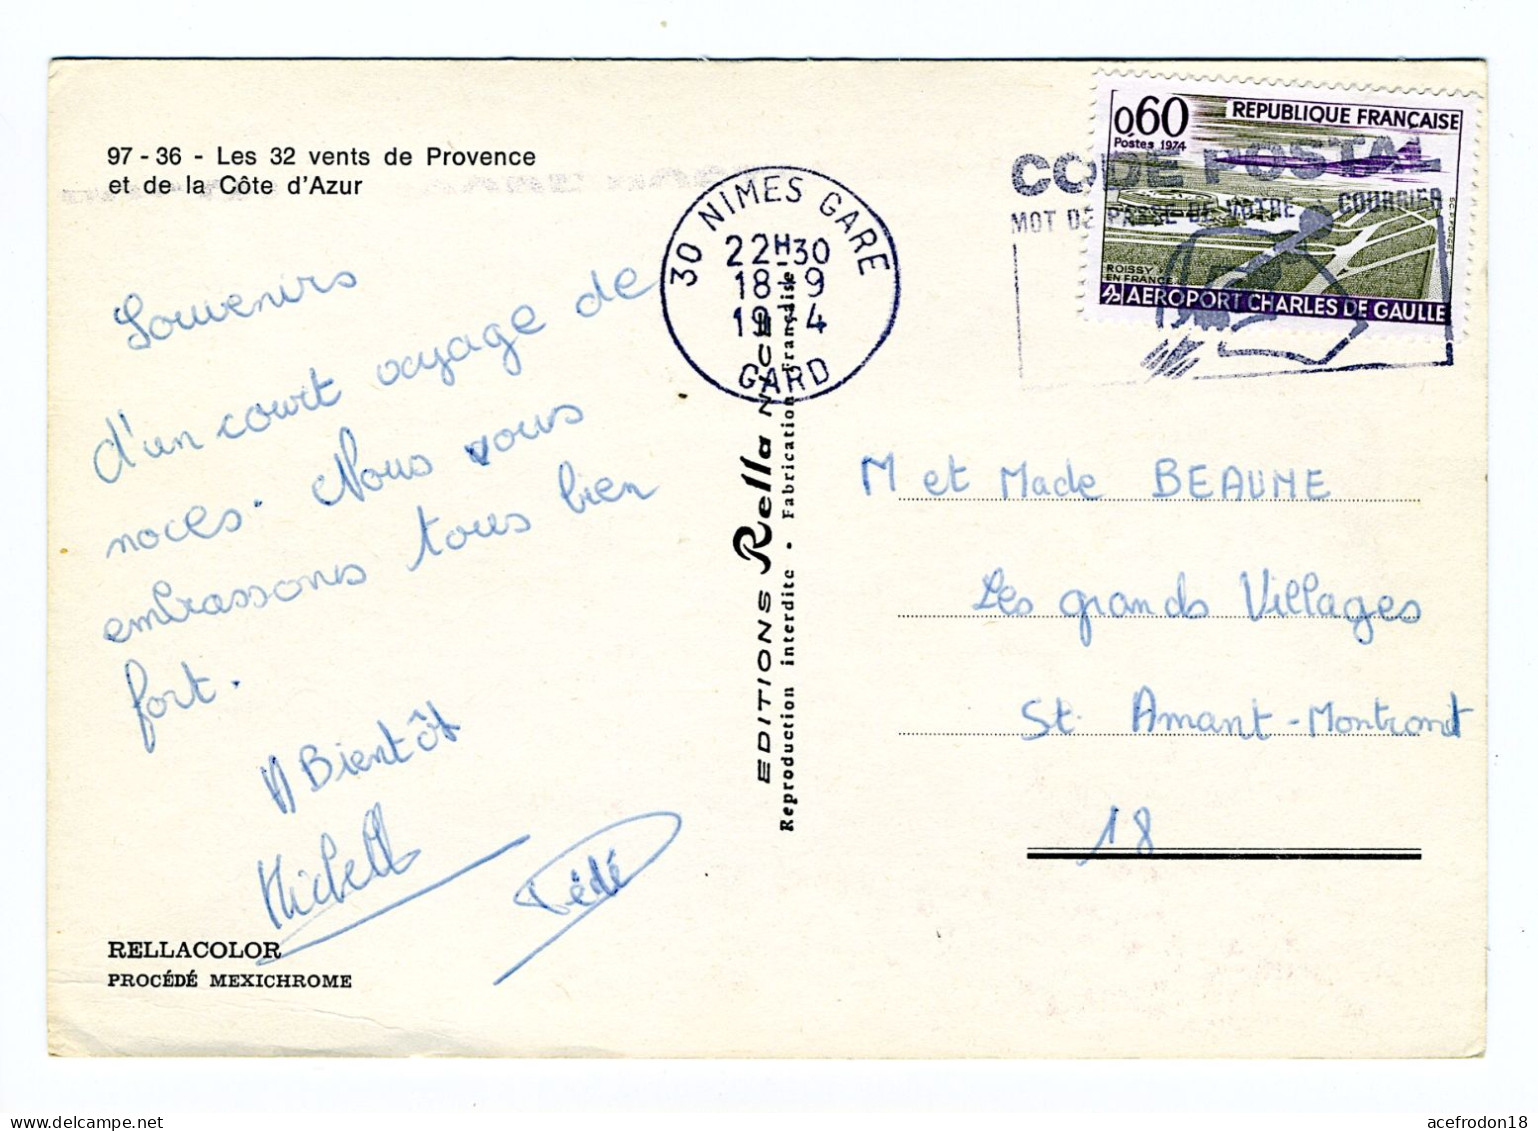 97 - 36 - Les 32 vents de Provence
et de la Côte d'Azur
Souvenirs
d'un court voyage de
noces. Nous vous
embrassons tous bien
fort.
A Bientôt
Dédé
RELLACOLOR
PROCÉDÉ MEXICHROME
EDITIONS Rella NICE
Reproduction interdite • Fabrication Française
30 NIMES GARE
22H30
18-9
1974
GARD
0,60
REPUBLIQUE FRANÇAISE
Postes 1974
CODE POSTAL
MOT DE PASSE DE VOTRE COURRIER
ROISSY
EN FRANCE
AEROPORT CHARLES DE GAULLE
M et Made BEAUNE
Les grands Villages
St. Amant-Montrond
18
acefrodon18